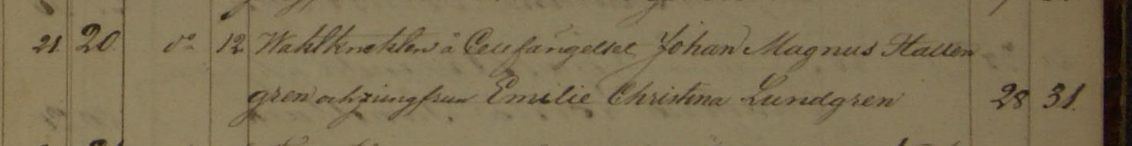 21. 20. do 12. Waktknekten å Cellfängelset Johan Magnus Hallen
gren och jungfrun Emilie Christina Lundgren 28 31.